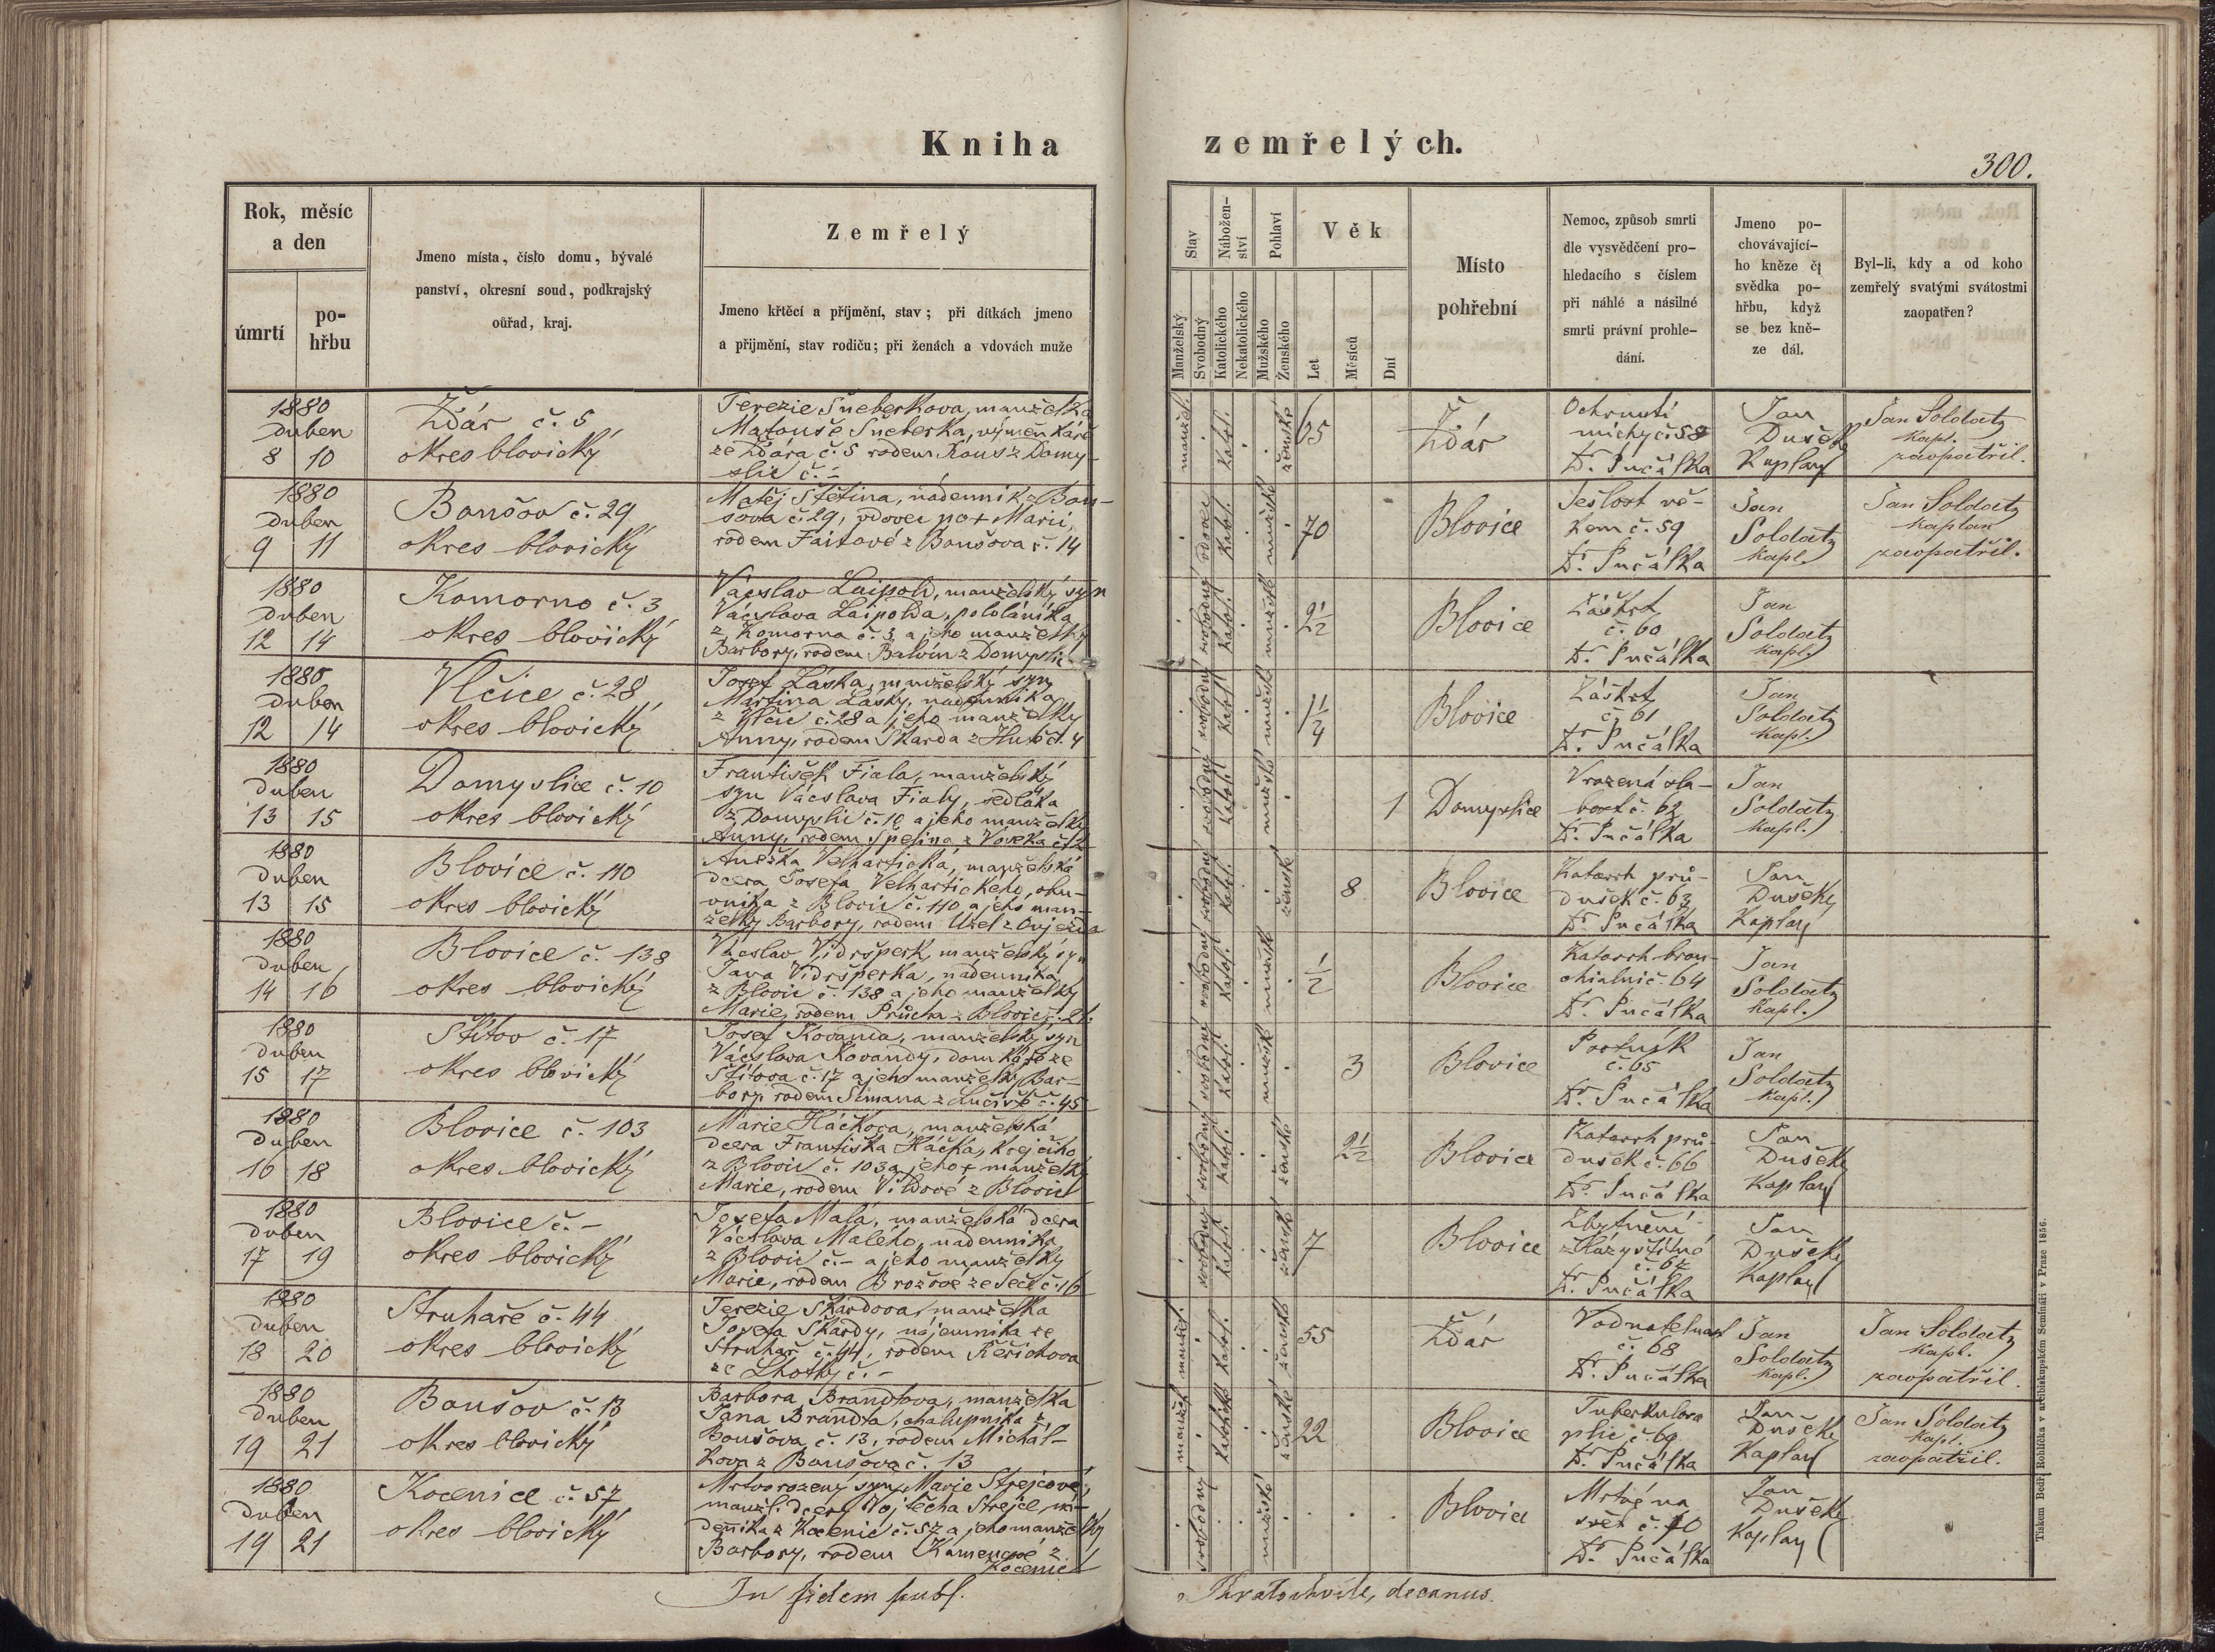 Kniha
zemřelých.
300.
Rok, měsíc
a den
úmrtí
po-
hřbu
Jmeno místa, číslo domu, bývalé
panství, okresní soud, podkrajský
oůřad, kraj.
Zemřelý
Jmeno křtěcí a příjmění, stav; při dítkách jmeno
a přijmění, stav rodičů; při ženách a vdovách muže
Stav
Nábožen-
ství
Pohlaví
Věk
Manželský
Svobodný
Katolického
Nekatolického
Mužského
Ženského
Let
Měsíců
Dní
Místo
pohřební
Nemoc, způsob smrti
dle vysvědčení pro-
hledacího s číslem
při náhlé a násilné
smrti právní prohle-
dání.
Jmeno po-
chovávající-
ho kněze či
svědka po-
hřbu, když
se bez kně-
ze dál.
Byl-li, kdy a od koho
zemřelý svatými svátostmi
zaopatřen?
1880
duben
8 10
Žďár č. 5
okres blovický
Terezie Šneberkova, manželka
Matouše Šneberka, výměnkáře
ze Žďára č. 5 rodem Kous z Domy-
slic č. –
manžel. katol. ženské 65
Žďár
Ochrnutí
míchy č. 58
Dr. Pučálka
Jan
Dušek
Kaplan
Jan Soldatz
kapl.
zaopatřil.
1880
duben
9 11
Boušov č. 29
okres blovický
Matěj Štětina, nádenník z Bou-
šova č. 29, vdovec po + Marii,
rodem Faitové z Boušova č. 14
vdovec katol. mužské 70
Blovice
Sešlost vě-
kem č. 59
Dr. Pučálka
Jan
Soldatz
kapl.
Jan Soldatz
kaplan
zaopatřil.
1880
duben
12 14
Komorno č. 3
okres blovický
Václav Laipold, manželský syn
Václava Laipolda, pololáníka
z Komorna č. 3 a jeho manželky
Barbory, rodem Balvín z Domyslic
svobodný katol. mužské 2 1/2
Blovice
Záškrt
č. 60
Dr. Pučálka
Jan
Soldatz
kapl.
1880
duben
12 14
Vlčice č. 28
okres blovický
Josef Láska, manželský syn
Martina Lásky, nádenníka
z Vlčic č. 28 a jeho manželky
Anny, rodem Škarda z Hutě č. 4
svobodný katol. mužské 1 1/4
Blovice
Záškrt
č. 61
Dr. Pučálka
Jan
Soldatz
kapl.
1880
duben
13 15
Domyslice č. 10
okres blovický
František Fiala, manželský
syn Václava Fialy, sedláka
z Domyslic č. 10 a jeho manželky
Anny, rodem Špelina z Voseka č. 2
svobodný katol. mužské 1
Domyslice
Vrozená sla-
bost č. 62
Dr. Pučálka
Jan
Soldatz
kapl.
1880
duben
13 15
Blovice č. 110
okres blovický
Anežka Velhartická, manželská
dcera Josefa Velhartického, obu-
vníka z Blovic č. 110 a jeho man-
želky Barbory, rodem Uzel z Oujezda
svobodný katol. ženské 8
Blovice
Katarrh prů-
dušek č. 63
Dr. Pučálka
Jan
Dušek
Kaplan
1880
duben
14 16
Blovice č. 138
okres blovický
Václav Vidršperk, manželský syn
Jana Vidršperka, nádenníka
z Blovic č. 138 a jeho manželky
Marie, rodem Průcha z Blovic č. 21.
svobodný katol. mužské 1/2
Blovice
Katarrh bron-
chialní č. 64
Dr. Pučálka
Jan
Soldatz
kapl.
1880
duben
15 17
Štítov č. 17
okres blovický
Josef Kovanda, manželský syn
Václava Kovandy, domkáře ze
Štítova č. 17 a jeho manželky Bar-
bory rodem Šimana z Lučiště č. 45
svobodný katol. mužské 3
Blovice
Psotník
č. 65
Dr. Pučálka
Jan
Soldatz
kapl.
1880
duben
16 18
Blovice č. 103
okres blovický
Marie Háčkova, manželská
dcera Františka Háčka, krejčího
z Blovic č. 103 a jeho + manželky
Marie, rodem Vildové z Blovic
svobodný katol. ženské 2 1/2
Blovice
Katarrh prů-
dušek č. 66
Dr. Pučálka
Jan
Dušek
Kaplan
1880
duben
17 19
Blovice č. –
okres blovický
Josefa Malá, manželská dcera
Václava Malého, nádenníka
z Blovic č. – a jeho manželky
Marie, rodem Brožové ze Seče č. 16
svobodný katol. ženské 7
Blovice
Zbytnění
žlázy štítné
č. 67
Dr. Pučálka
Jan
Dušek
Kaplan
1880
duben
18 20
Struhaře č. 44
okres blovický
Terezie Škardova, manželka
Josefa Škardy, nájemníka ze
Struhař č. 44, rodem Řeřichova
ze Lhotky č. –
manžel. katol. ženské 55
Žďár
Vodnatelnost
č. 68
Dr. Pučálka
Jan
Soldatz
kapl.
Jan Soldatz
kapl.
zaopatřil.
1880
duben
19 21
Boušov č. 13
okres blovický
Barbora Brandtova, manželka
Jana Brandta, chalupníka z
Boušova č. 13, rodem Michál-
kova z Boušova č. 13
manžel. katolické ženské 22
Blovice
Tuberkulosa
plic č. 69.
Dr. Pučálka
Jan
Dušek
Kaplan
Jan Soldatz
kapl.
zaopatřil.
1880
duben
19 21
Kocenice č. 57
okres blovický
Mrtvorozený syn Marie Strejcové,
manžel. dcery Vojtěcha Strejce, ná-
deníka z Kocenic č. 57 a jeho manželky
Barbory, rodem Kamencové z
Kocenic
svobodný mužské
Blovice
Mrtvé na
svět č. 70
Dr. Pučálka
Jan
Dušek
Kaplan
In fidem publ.
Kratochvíle, decanus.
Tiskem Bedř. Rohlíčka v arcibiskupském Semináři v Praze 1856.